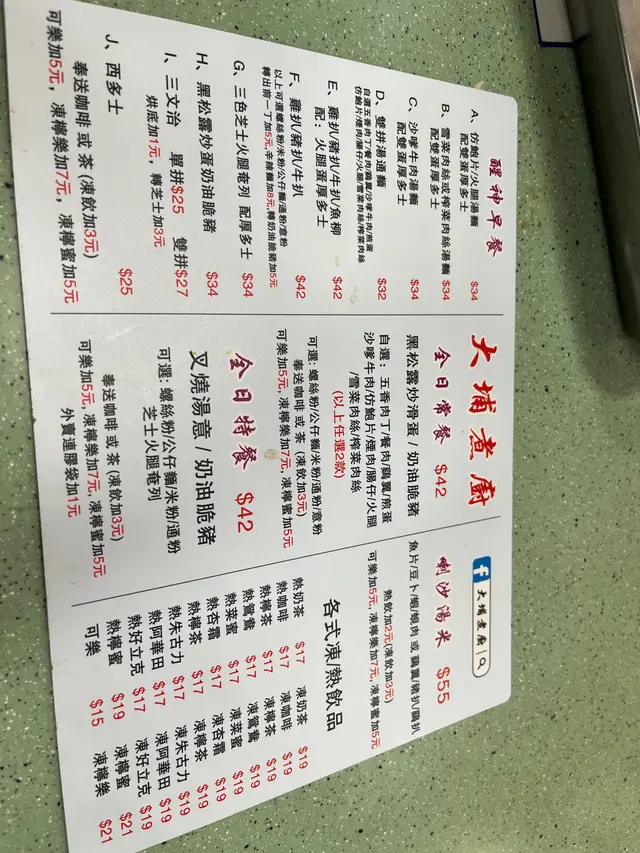 醒神早餐
A、仿鮑片/火腿湯麵
配雙蛋厚多士 $34
B、雪菜肉絲或榨菜肉絲湯麵
配雙蛋厚多士 $34
C、沙嗲牛肉湯麵
配雙蛋厚多士 $34
D、雙拼湯通麵 $32
自選五香肉丁/餐肉/鷄翼/沙嗲牛肉/煎蛋
仿鮑片/煙肉/腸仔/火腿/雪菜肉絲/榨菜肉絲
E、雞扒/豬扒/牛扒/魚柳
配：火腿蛋厚多士 $42
F、雞扒/豬扒/牛扒 $42
以上可選螺絲粉/米粉/公仔麵/通粉/意粉
轉出前一丁加5元,辛辣麵加8元,轉奶油脆豬加5元
G、三色芝士火腿奄列 配厚多士 $34
H、黑松露炒蛋奶油脆豬 $34
I、三文治 單拼$25 雙拼$27
烘底加1元，轉芝士加3元
J、西多士 $25
奉送咖啡 或 茶 (凍飲加3元)
可樂加5元，凍檸樂加7元，凍檸蜜加5元
大埔煮廚
全日常餐 $42
黑松露炒滑蛋 / 奶油脆豬
自選：五香肉丁/餐肉/鷄翼/煎蛋
沙嗲牛肉/仿鮑片/煙肉/腸仔/火腿
/雪菜肉絲/榨菜肉絲
(以上任選2款)
可選: 螺絲粉/公仔麵/米粉/通粉/意粉
奉送咖啡 或 茶 (凍飲加3元)
可樂加5元, 凍檸樂加7元, 凍檸蜜加5元
全日特餐 $42
叉燒湯意 / 奶油脆豬
可選: 螺絲粉/公仔麵/米粉/通粉
芝士火腿奄列
奉送咖啡 或 茶 (凍飲加3元)
可樂加5元, 凍檸樂加7元, 凍檸蜜加5元
外賣連膠袋加1元
f 大埔煮廚
喇沙湯米 $55
魚片/豆卜/蝦/蜆肉 或 鷄翼/豬扒/鷄扒
熱飲加2元(凍飲加3元)
可樂加5元, 凍檸樂加7元, 凍檸蜜加5元
各式凍/熱飲品
熱奶茶 $17 凍奶茶 $19
熱咖啡 $17 凍咖啡 $19
熱檸茶 $17
熱鴛鴦 $17 凍鴛鴦 $19
熱菜蜜 $17 凍菜蜜 $19
熱杏霜 $17 凍杏霜 $19
熱檸茶 $17 凍檸茶 $19
熱朱古力 $17 凍朱古力 $19
熱阿華田 $17 凍阿華田 $19
熱好立克 $17 凍好立克 $19
熱檸蜜 $19 凍檸蜜 $21
可樂 $15 凍檸樂 $21